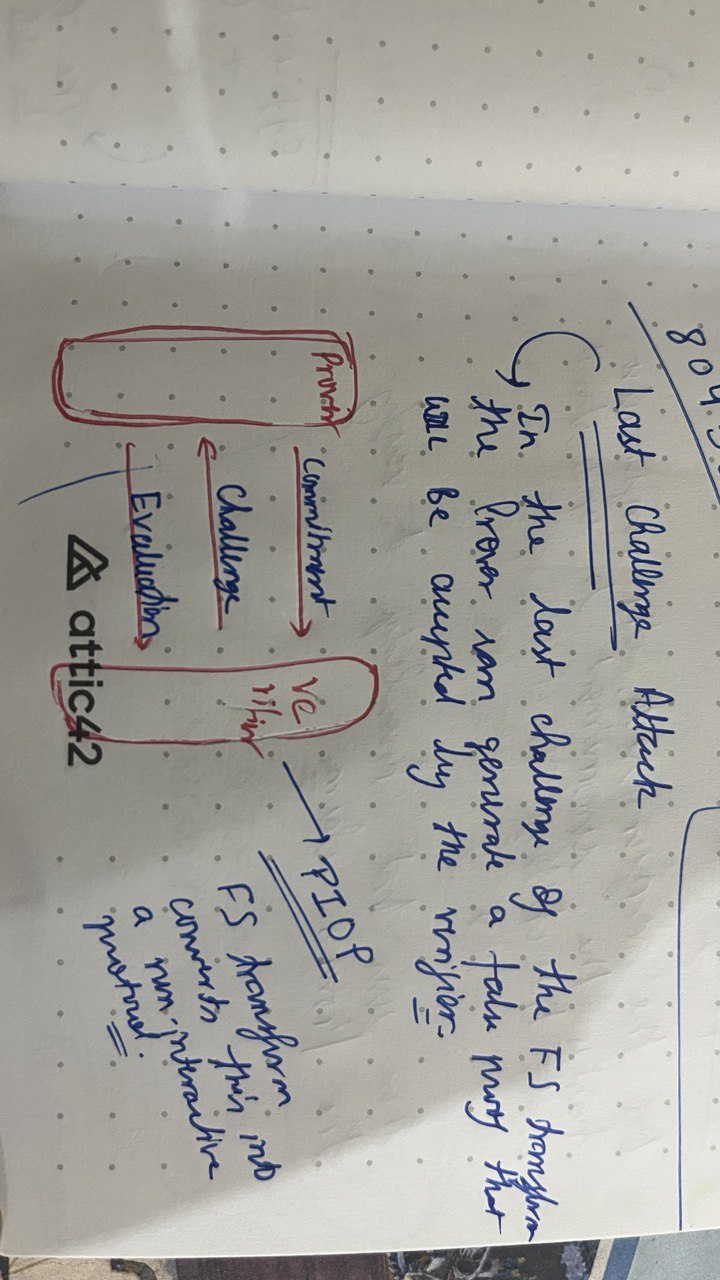 804
Last Challenge Attack
In the last challenge of the FS transform
the Prover can generate a false proof that
will be accepted by the verifier.
Prover
Commitment
Challenge
Evaluation
Ve
rifier
PIOP
FS transform
converts this into
a non-interactive
protocol.
attic42